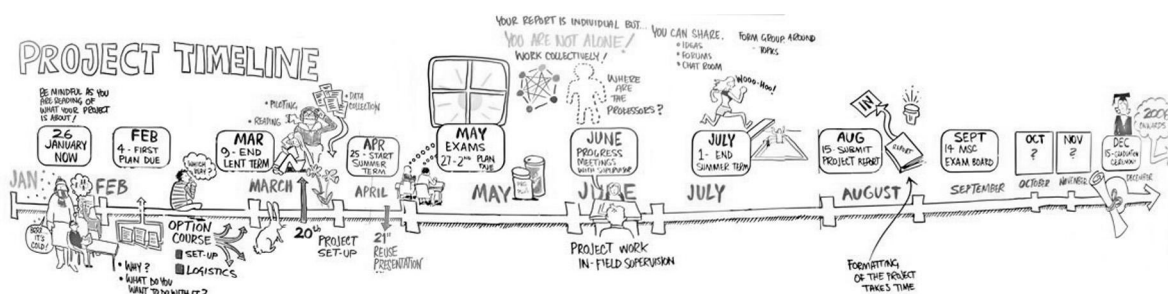 PROJECT TIMELINE
BE MINDFUL AS YOU
ARE READING OF
WHAT YOUR PROJECT
IS ABOUT!
26
JANUARY
NOW
FEB
4 - FIRST
PLAN DUE
WHICH
WAY?
• PILOTING
• READING
• DATA
COLLECTION
MAR
9 - END
LENT TERM
APR
25 - START
SUMMER
TERM
MAY
EXAMS
27 - 2ND PLAN
YOUR REPORT IS INDIVIDUAL BUT...
YOU ARE NOT ALONE!
WORK COLLECTIVELY!
WHERE
ARE
THE
PROFESSORS?
YOU CAN SHARE.
• IDEAS
• FORUMS
• CHAT ROOM
FORM GROUP AROUND
TOPICS
JUNE
PROGRESS
MEETINGS
WITH SUPERVISOR
WOOO-HOO!
JULY
1 - END
SUMMER TERM
AUG
15 - SUBMIT
PROJECT REPORT
SEPT
14 MSC
EXAM BOARD
OCT
?
NOV
?
DEC
15 - GRADUATION
CEREMONY
JAN
FEB
MARCH
APRIL
MAY
JUNE
JULY
AUGUST
SEPTEMBER
OCTOBER
NOVEMBER
DECEMBER
BRRR
IT'S
COLD!
• WHY?
• WHAT DO YOU
WANT TO DO WITH IT?
OPTION
COURSE
SET-UP
LOGISTICS
20th
PROJECT
SET-UP
21st
REUSE
PRESENTATION
PROJECT WORK
IN-FIELD SUPERVISION
FORMATTING
OF THE PROJECT
TAKES TIME